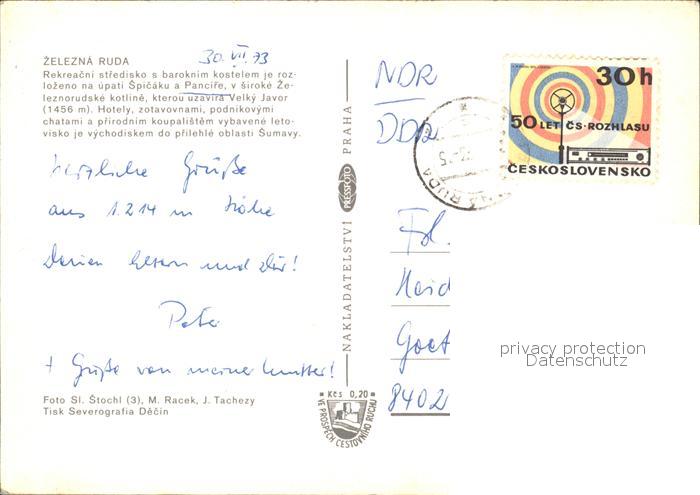 ŽELEZNÁ RUDA
30. VII. 73
Rekreační středisko s barokním kostelem je roz-
loženo na úpatí Špičáku a Pancíře, v široké Že-
leznorudské kotlině, kterou uzavírá Velký Javor
(1456 m). Hotely, zotavovnami, podnikovými
chatami a přírodním koupalištěm vybavené leto-
visko je východiskem do přilehlé oblasti Šumavy.
Herzliche Grüße
aus 1.214 m Höhe
Deinen Eltern und Dir!
Peter
+ Grüße von meiner Mutter!
Foto Sl. Štochl (3), M. Racek, J. Tachezy
Tisk Severografia Děčín
NAKLADATELSTVÍ PRESSFOTO PRAHA
Kčs 0,20
VE PROSPĚCH CESTOVNÍHO RUCHU
NDR
DDR
30h
50 LET ČS. ROZHLASU
ČESKOSLOVENSKO
RUDA
Frl.
Heid
Goet
8402
privacy protection
Datenschutz